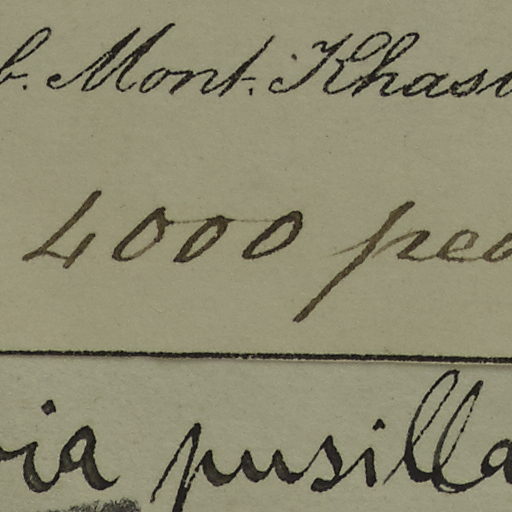 b. Mont. Khasi
4000 ped
via pusilla